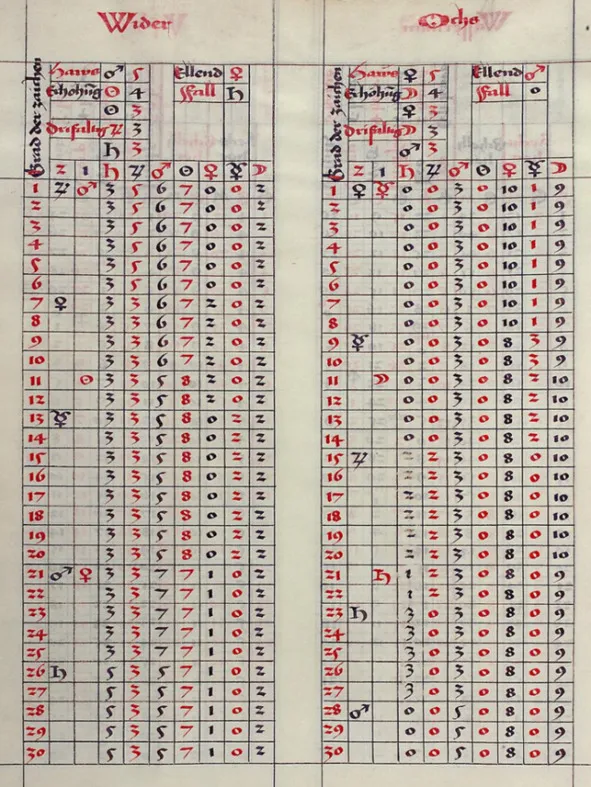 Wider
Grad der zaichen
Haws ♂ 5 Ellend ♀
Erhöhũg ☉ 4 ffall ♄
☉ 3
Drifaltig ♃ 3
♄ 3
2 1 ♄ ♃ ♂ ☉ ♀ ☿ ☽
1 ♃ ♂ 3 5 6 7 0 0 2
2 3 5 6 7 0 0 2
3 3 5 6 7 0 0 2
4 3 5 6 7 0 0 2
5 3 5 6 7 0 0 2
6 3 5 6 7 0 0 2
7 ♀ 3 3 6 7 2 0 2
8 3 3 6 7 2 0 2
9 3 3 6 7 2 0 2
10 3 3 6 7 2 0 2
11 ☉ 3 3 5 8 2 0 2
12 3 3 5 8 2 0 2
13 ☿ 3 3 5 8 0 2 2
14 3 3 5 8 0 2 2
15 3 3 5 8 0 2 2
16 3 3 5 8 0 2 2
17 3 3 5 8 0 2 2
18 3 3 5 8 0 2 2
19 3 3 5 8 0 2 2
20 3 3 5 8 0 2 2
21 ♂ ♀ 3 3 7 7 1 0 2
22 3 3 7 7 1 0 2
23 3 3 7 7 1 0 2
24 3 3 7 7 1 0 2
25 3 3 7 7 1 0 2
26 ♄ 5 3 5 7 1 0 2
27 5 3 5 7 1 0 2
28 5 3 5 7 1 0 2
29 5 3 5 7 1 0 2
30 5 3 5 7 1 0 2
Ochs
Grad der zaichen
Haws ♀ 5 Ellend ♂
Erhöhũg ☽ 4 ffall 0
♀ 3
Drifaltig ☽ 3
♂ 3
2 1 ♄ ♃ ♂ ☉ ♀ ☿ ☽
1 ♀ ☿ 0 0 3 0 10 1 9
2 0 0 3 0 10 1 9
3 0 0 3 0 10 1 9
4 0 0 3 0 10 1 9
5 0 0 3 0 10 1 9
6 0 0 3 0 10 1 9
7 0 0 3 0 10 1 9
8 0 0 3 0 10 1 9
9 ☿ 0 0 3 0 8 3 9
10 0 0 3 0 8 3 9
11 ☽ 0 0 3 0 8 2 10
12 0 0 3 0 8 2 10
13 0 0 3 0 8 2 10
14 0 0 3 0 8 2 10
15 ♃ 2 2 3 0 8 0 10
16 2 2 3 0 8 0 10
17 2 2 3 0 8 0 10
18 2 2 3 0 8 0 10
19 2 2 3 0 8 0 10
20 2 2 3 0 8 0 10
21 ♄ 1 2 3 0 8 0 9
22 1 2 3 0 8 0 9
23 ♄ 3 0 3 0 8 0 9
24 3 0 3 0 8 0 9
25 3 0 3 0 8 0 9
26 3 0 3 0 8 0 9
27 3 0 3 0 8 0 9
28 ♂ 0 0 5 0 8 0 9
29 0 0 5 0 8 0 9
30 0 0 5 0 8 0 9